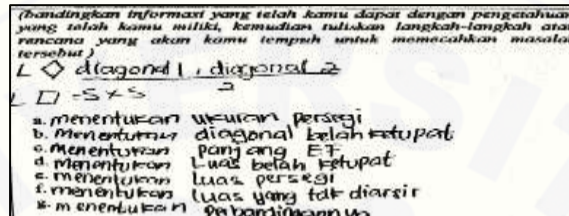 (bandingkan informasi yang telah kamu dapat dengan pengetahuan
yang telah kamu miliki, kemudian tuliskan langkah-langkah atau
rencana yang akan kamu tempuh untuk memecahkan masalah
tersebut)
L ◇ diagonal 1 . diagonal 2
2
L □ = S × S
a. menentukan ukuran persegi
b. menentukan diagonal belah ketupat
c. menentukan panjang EF
d. menentukan Luas belah ketupat
e. menentukan luas persegi
f. menentukan luas yang tdk diarsir
g. menentukan perbandingannya